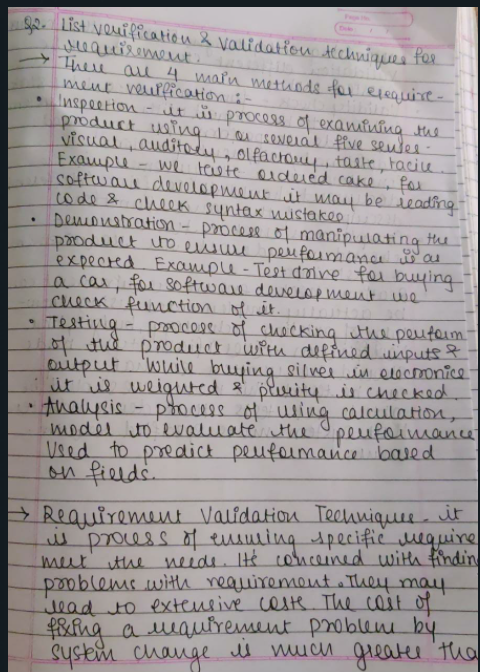 Q2. List verification & Validation techniques for
requirement.
→ There are 4 main methods for require-
ment verification :-
• Inspection - it is process of examining the
product using 1 or several five senses.
visual, auditory, olfactory, taste, tacile.
Example - we taste ordered cake, for
software development it may be reading
code & check syntax mistakes.
• Demonstration - process of manipulating the
product to ensure performance is as
expected Example - Test drive for buying
a car, for software development we
check function of it.
• Testing - process of checking the perform
of the product with defined inputs &
output while buying silver in electronics
it is weighted & purity is checked.
• Analysis - process of using calculation,
model to evaluate the performance
used to predict performance based
on fields.
→ Requirement Validation Techniques - it
is process of ensuring specific require
meet the needs. Its concerned with findin
problems with requirement. They may
lead to extensive costs. The cost of
fixing a requirement problem by
system change is much greater tha